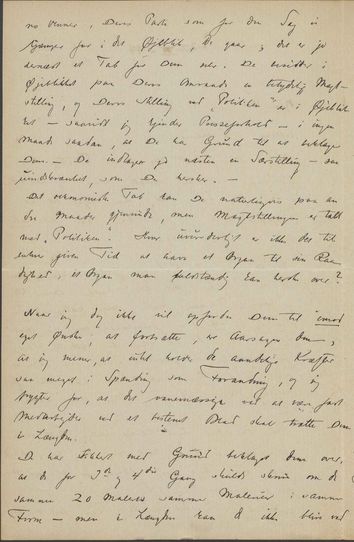 no Venner, Deres Parti som for den Sag i
Kjøbenhavn for i det Øjeblik, De gaar; det er jo
dernæst et Tab for Dem selv. De besidder i
Øjeblikket paa Deres Omraade en betydelig Magt-
stilling, og Deres Stilling ved "Politiken" er i Øjeblik-
ket — saavidt jeg kjender Presseforhold — i ingen
maade saadan, at De har Grund til at beklage
Dem. — De indtager jo næsten en Særstilling — saa
uindskrænket, som De hersker. —
Det oekonomiske Tab kan De naturligvis paa an-
den Maade gjenvinde, men Magtstillingen er tabt
med "Politiken". Hvor uvurderligt er ikke det til
enhver given Tid at have et Organ til sin Raa-
dighed, et Organ man fuldstændig kan herske over?
Naar jeg dog ikke vil opfordre Dem til imod
eget Ønske, at fortsætte, er Aarsagen den,
at jeg mener, at intet holder de aandelige Kræfter
saa meget i Spænding som Forandring, og jeg
frygter for, at det vanemæssige ved at være fast
Medarbejder ved et bestemt Blad skal trætte Dem
i Længden.
De har sikkert med Grund beklaget Dem over,
at De for 3die og 4die Gang skulde skrive om de
samme 20 Maleres samme Malerier i samme
Form — men i Længden kan de ikke blive ved